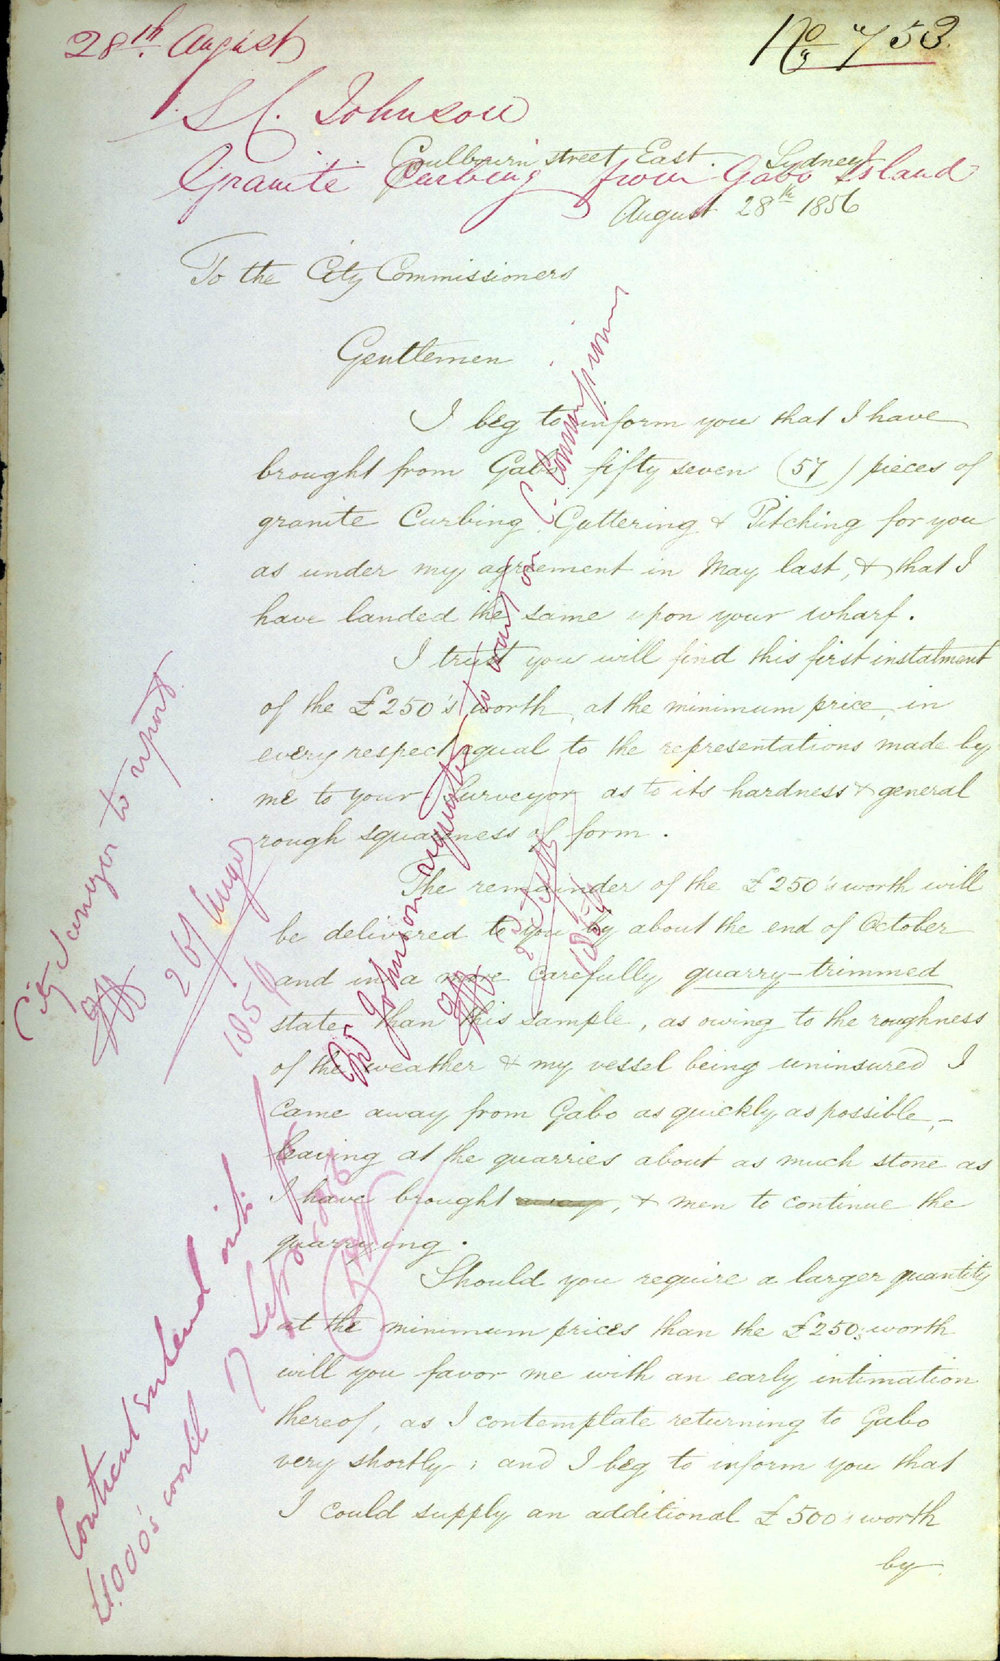 28th August
No 753
S C. Johnson
Goulbourn street East. Sydney
Granite Curbing from Gabo Island
August 28th 1856
To the City Commissioners
Gentlemen
I beg to inform you that I have
brought from Gabo fifty seven (57) pieces of
granite Curbing Guttering & Pitching for you
as under my agreement in May last, & that I
have landed the same upon your wharf.
I trust you will find this first instalment
of the £250's worth, at the minimum price, in
every respect equal to the representations made by
me to your Surveyor, as to its hardness & general
rough squareness of form.
The remainder of the £250's worth will
be delivered to you by about the end of October
and in a more carefully quarry-trimmed
state than this sample, as owing to the roughness
of the weather & my vessel being uninsured I
came away from Gabo as quickly as possible,-
leaving at the quarries about as much stone as
I have brought away, & men to continue the
quarrying.
Should you require a larger quantity
at the minimum prices than the £250's worth
will you favor me with an early intimation
thereof, as I contemplate returning to Gabo
very shortly; and I beg to inform you that
I could supply an additional £500's worth
by
City Surveyor to report
Augt
1856
Mr Johnson requested to wait on C. Commissioners
2 Septr
1856
Contract entered into for
£1.000's worth 7 Septr 1856